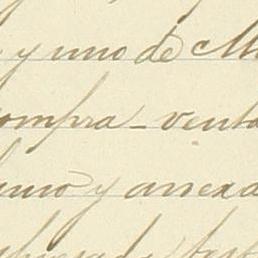 y uno de M
ompra-venta
uno y anexa